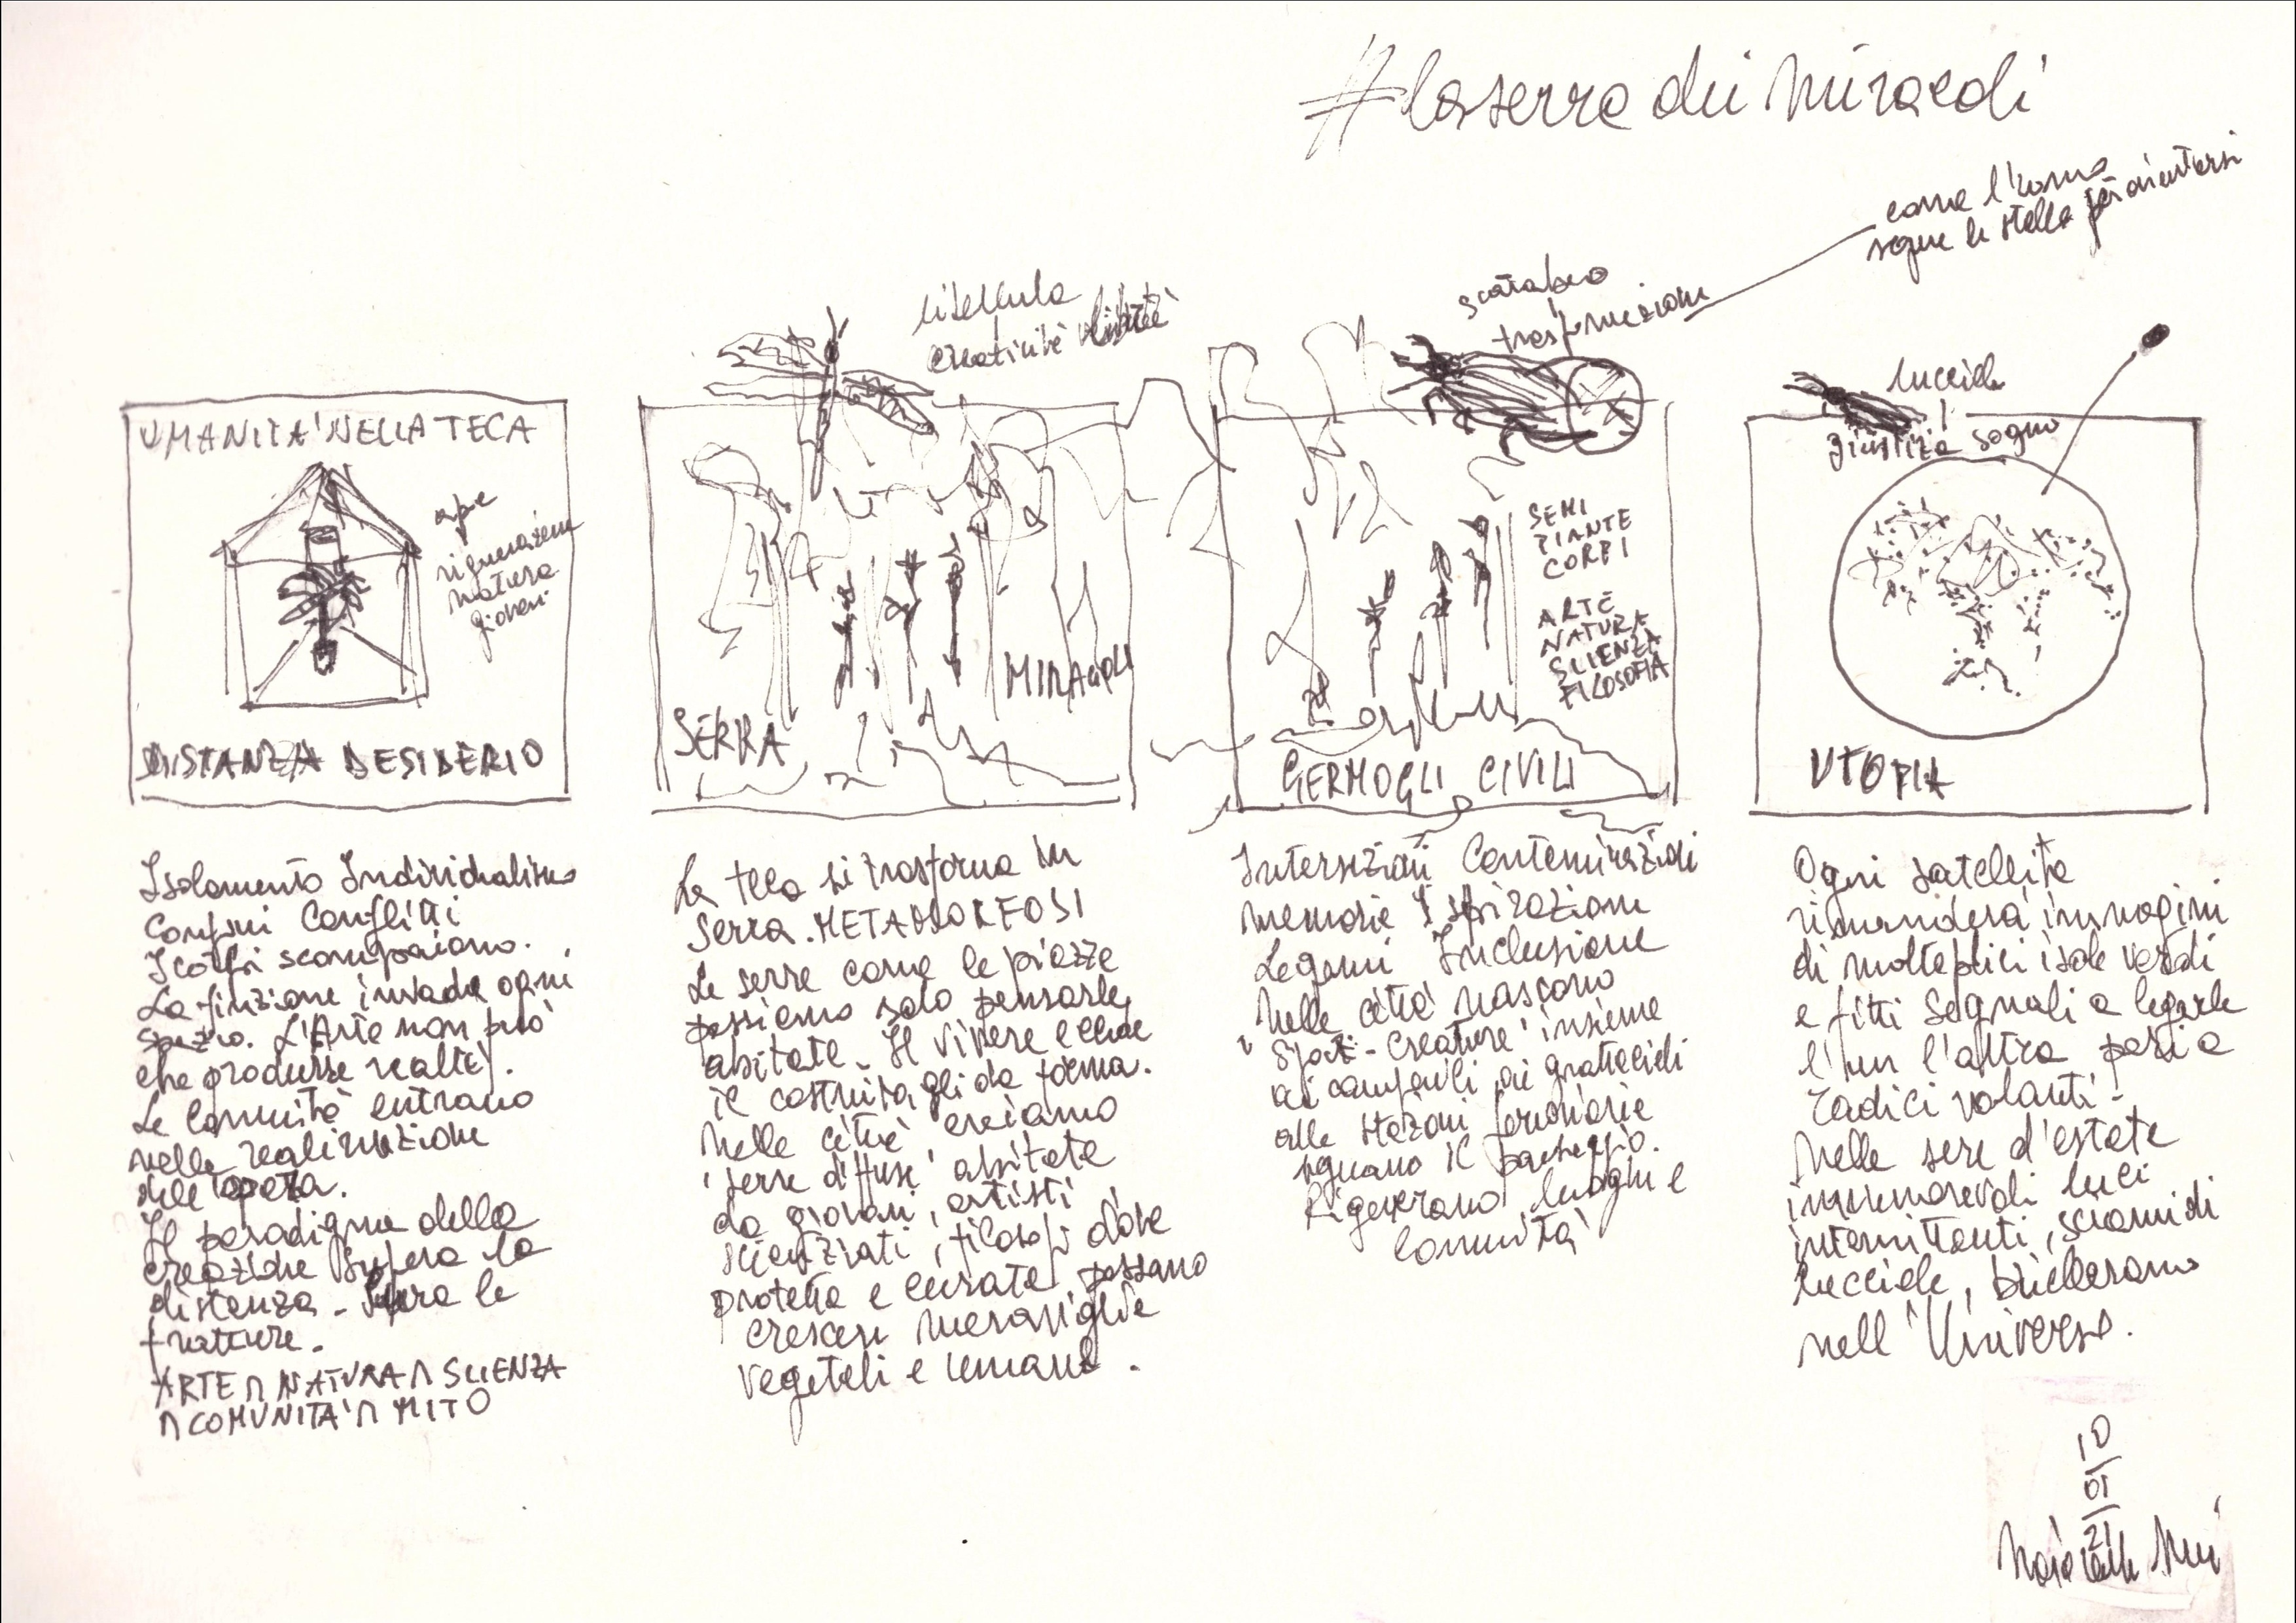 #laserra dei miracoli
come l'uomo
segue le stelle per orientarsi
UMANITA' NELLA TECA
ape
rigenerazione
natura
giovani
DISTANZA DESIDERIO
libellula
creatività libertà
SERRA
MIRACOLI
scarabeo
trasformazione
SEMI
PIANTE
CORPI
ARTE
NATURA
SCIENZA
FILOSOFIA
GERMOGLI CIVILI
lucciola
giustizia sogno
UTOPIA
Isolamento Individualismo
Confini Conflitti
I corpi scompaiono.
La finzione invade ogni
spazio. L'Arte non può
che produrre realtà.
Le Comunità entrano
nella realizzazione
dell'opera.
Il paradigma della
creazione supera la
distanza. Supera le
fratture.
ARTE ∩ NATURA ∩ SCIENZA
∩ COMUNITA' ∩ MITO
La teca si trasforma in
Serra. METAMORFOSI
Le serre come le piazze
possiamo solo pensarle
abitate. Il vivere e che
il costruito, gli dà forma.
Nelle città creiamo
'serre diffuse' abitate
da giovani, artisti,
scienziati, filosofi dove
protette e curate, possano
crescere meraviglie
vegetali e umane.
Intersezioni Contaminazioni
Memorie Ispirazioni
Legami Inclusione
Nelle città nascono
'Spazi-Creature' insieme
ai campanili, ai grattacieli
alle stazioni ferroviarie
segnano il paesaggio.
Rigenerano luoghi e
Comunità
Ogni satellite
rimanderà immagini
di molteplici isole verdi
e fitti segnali a legarle
l'un l'altra pari a
radici volanti.
Nelle sere d'estate
innumerevoli luci
intermittenti, sciami di
lucciole, brilleranno
nell'Universo.
10
01
21